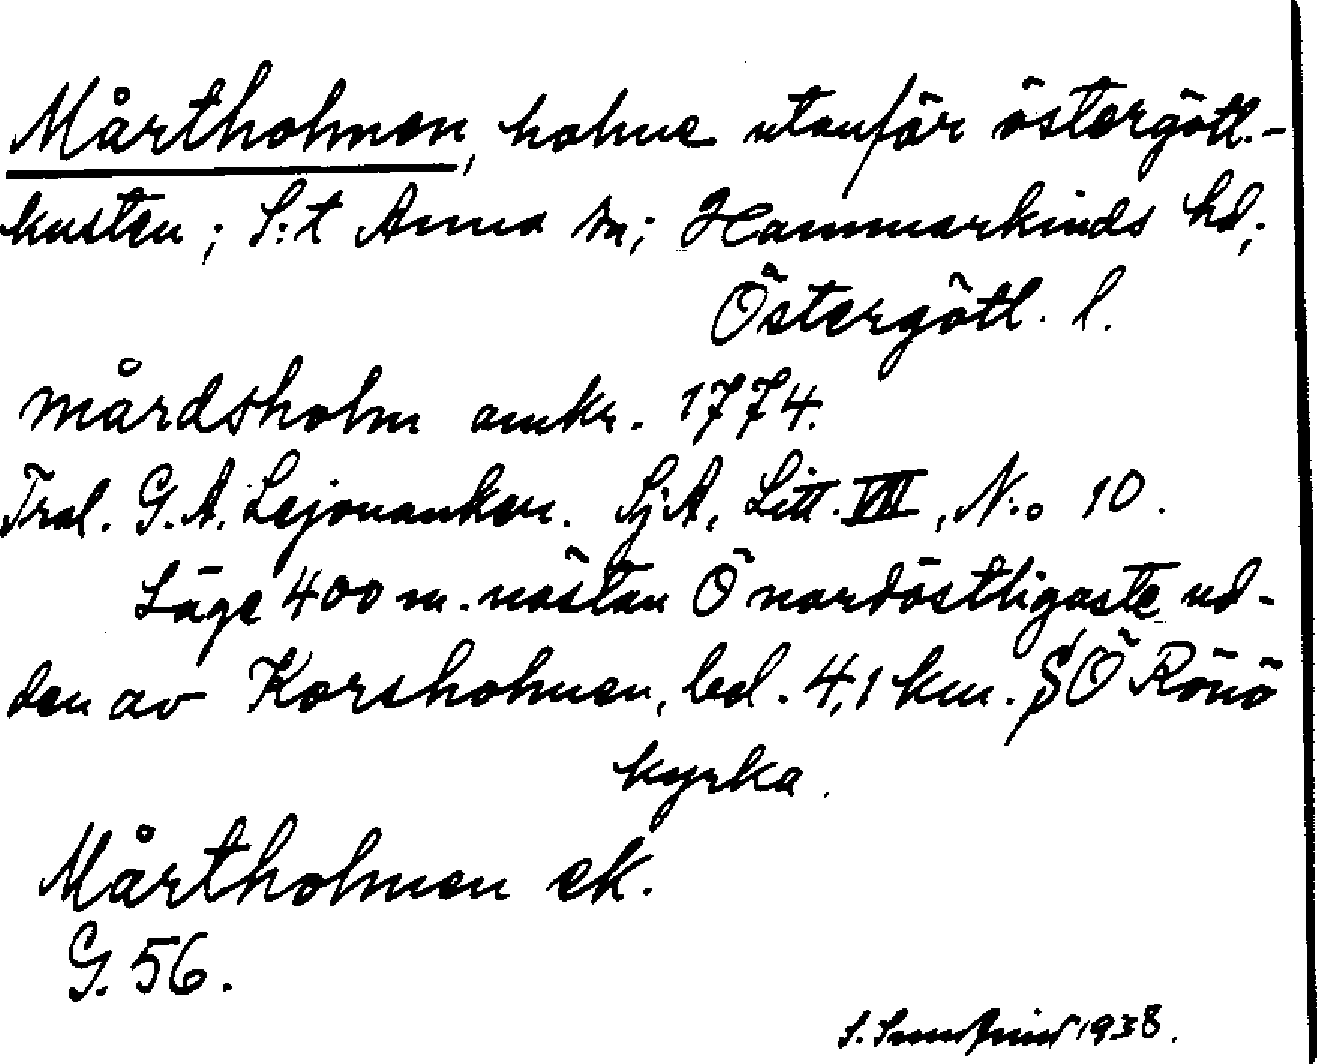 Mårtholmen, holme utanför östergötl.-
kusten; S:t Anna sn; Hammarkinds hd;
Östergötl. l.
Mårdsholm omkr. 1774.
Tral. G. A. Lejonanker. Sj.A, Litt. VIII, N:o 10.
Läge 400 m. nästan Ö nordöstligaste ud-
den av Korsholmen, bel. 4,1 km. SÖ Rönö
kyrka.
Mårtholmen ek.
G. 56.
S. 1938.